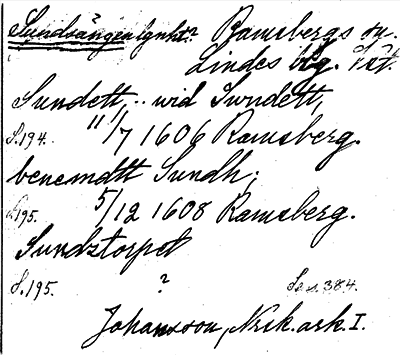 Sundsängen lgnht? Ramsbergs sn.
Lindes bg. Vät.
Sundett, .. wid Swndett,
S. 194. 11/7 1606 Ramsberg.
benemdtt Sundh;
S. 195. 5/12 1608 Ramsberg.
Sundztorpot
S. 195. ? Se s. 384.
Johansson, Nrsk. ark. I.